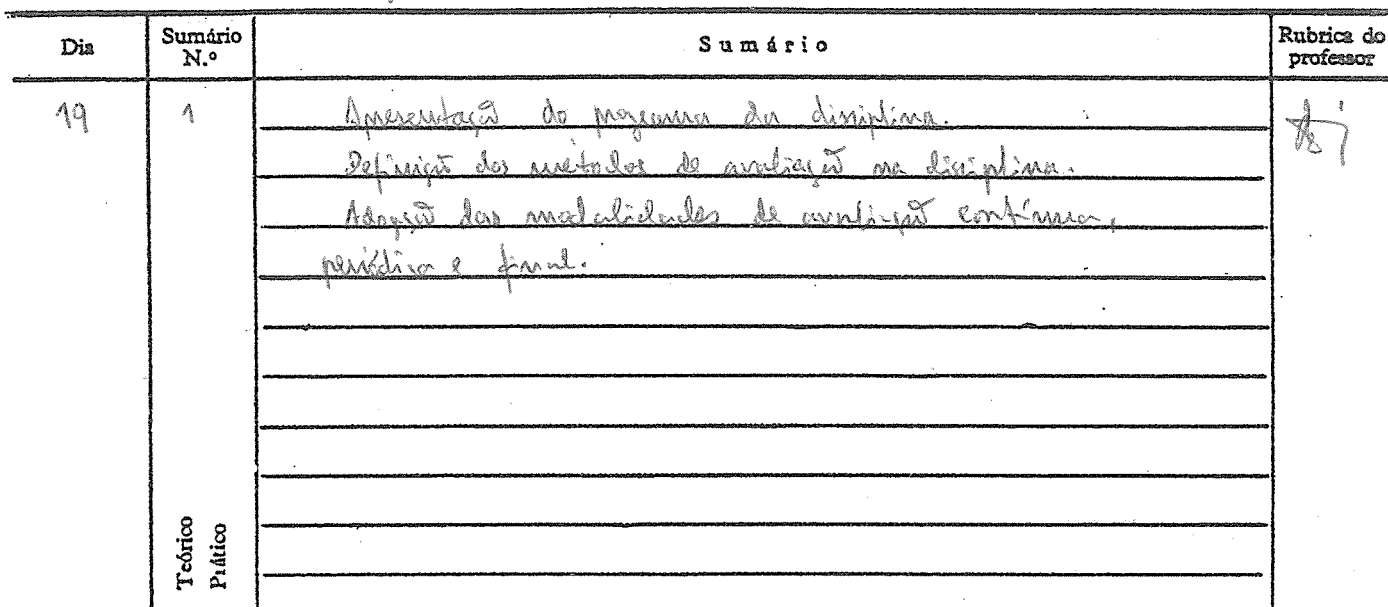 Dia Sumário N.º Sumário Rubrica do professor
19 1 Apresentação do programa da disciplina.
Definição dos métodos de avaliação na disciplina.
Adopção das modalidades de avaliação contínua,
periódica e final.
Teórico
Prático